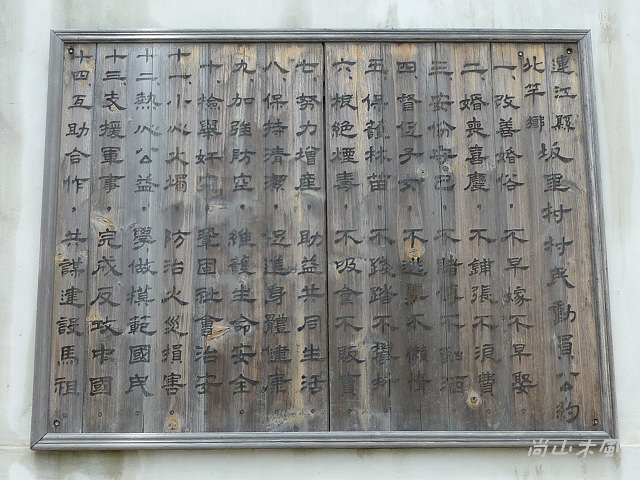 連江縣
北竿鄉 坂里村村民動員公約
一、改善婚俗，不早嫁不早娶
二、婚喪喜慶，不鋪張不浪費
三、安份守己，不賭博不酗酒
四、督促子女，不逃學不懶惰
五、保護林苗，不踐踏不攀折
六、根絕煙毒，不吸食不販賣
七、努力增產，助益共同生活。
八、保持清潔，促進身體健康
九、加強防空，維護生命安全
十、檢舉奸宄，鞏固社會治安
十一、小心火燭，防治火災損害。
十二、熱心公益，學做模範國民
十三、支援軍事，完成反攻中國
十四、互助合作，共謀建設馬祖
尚山木風